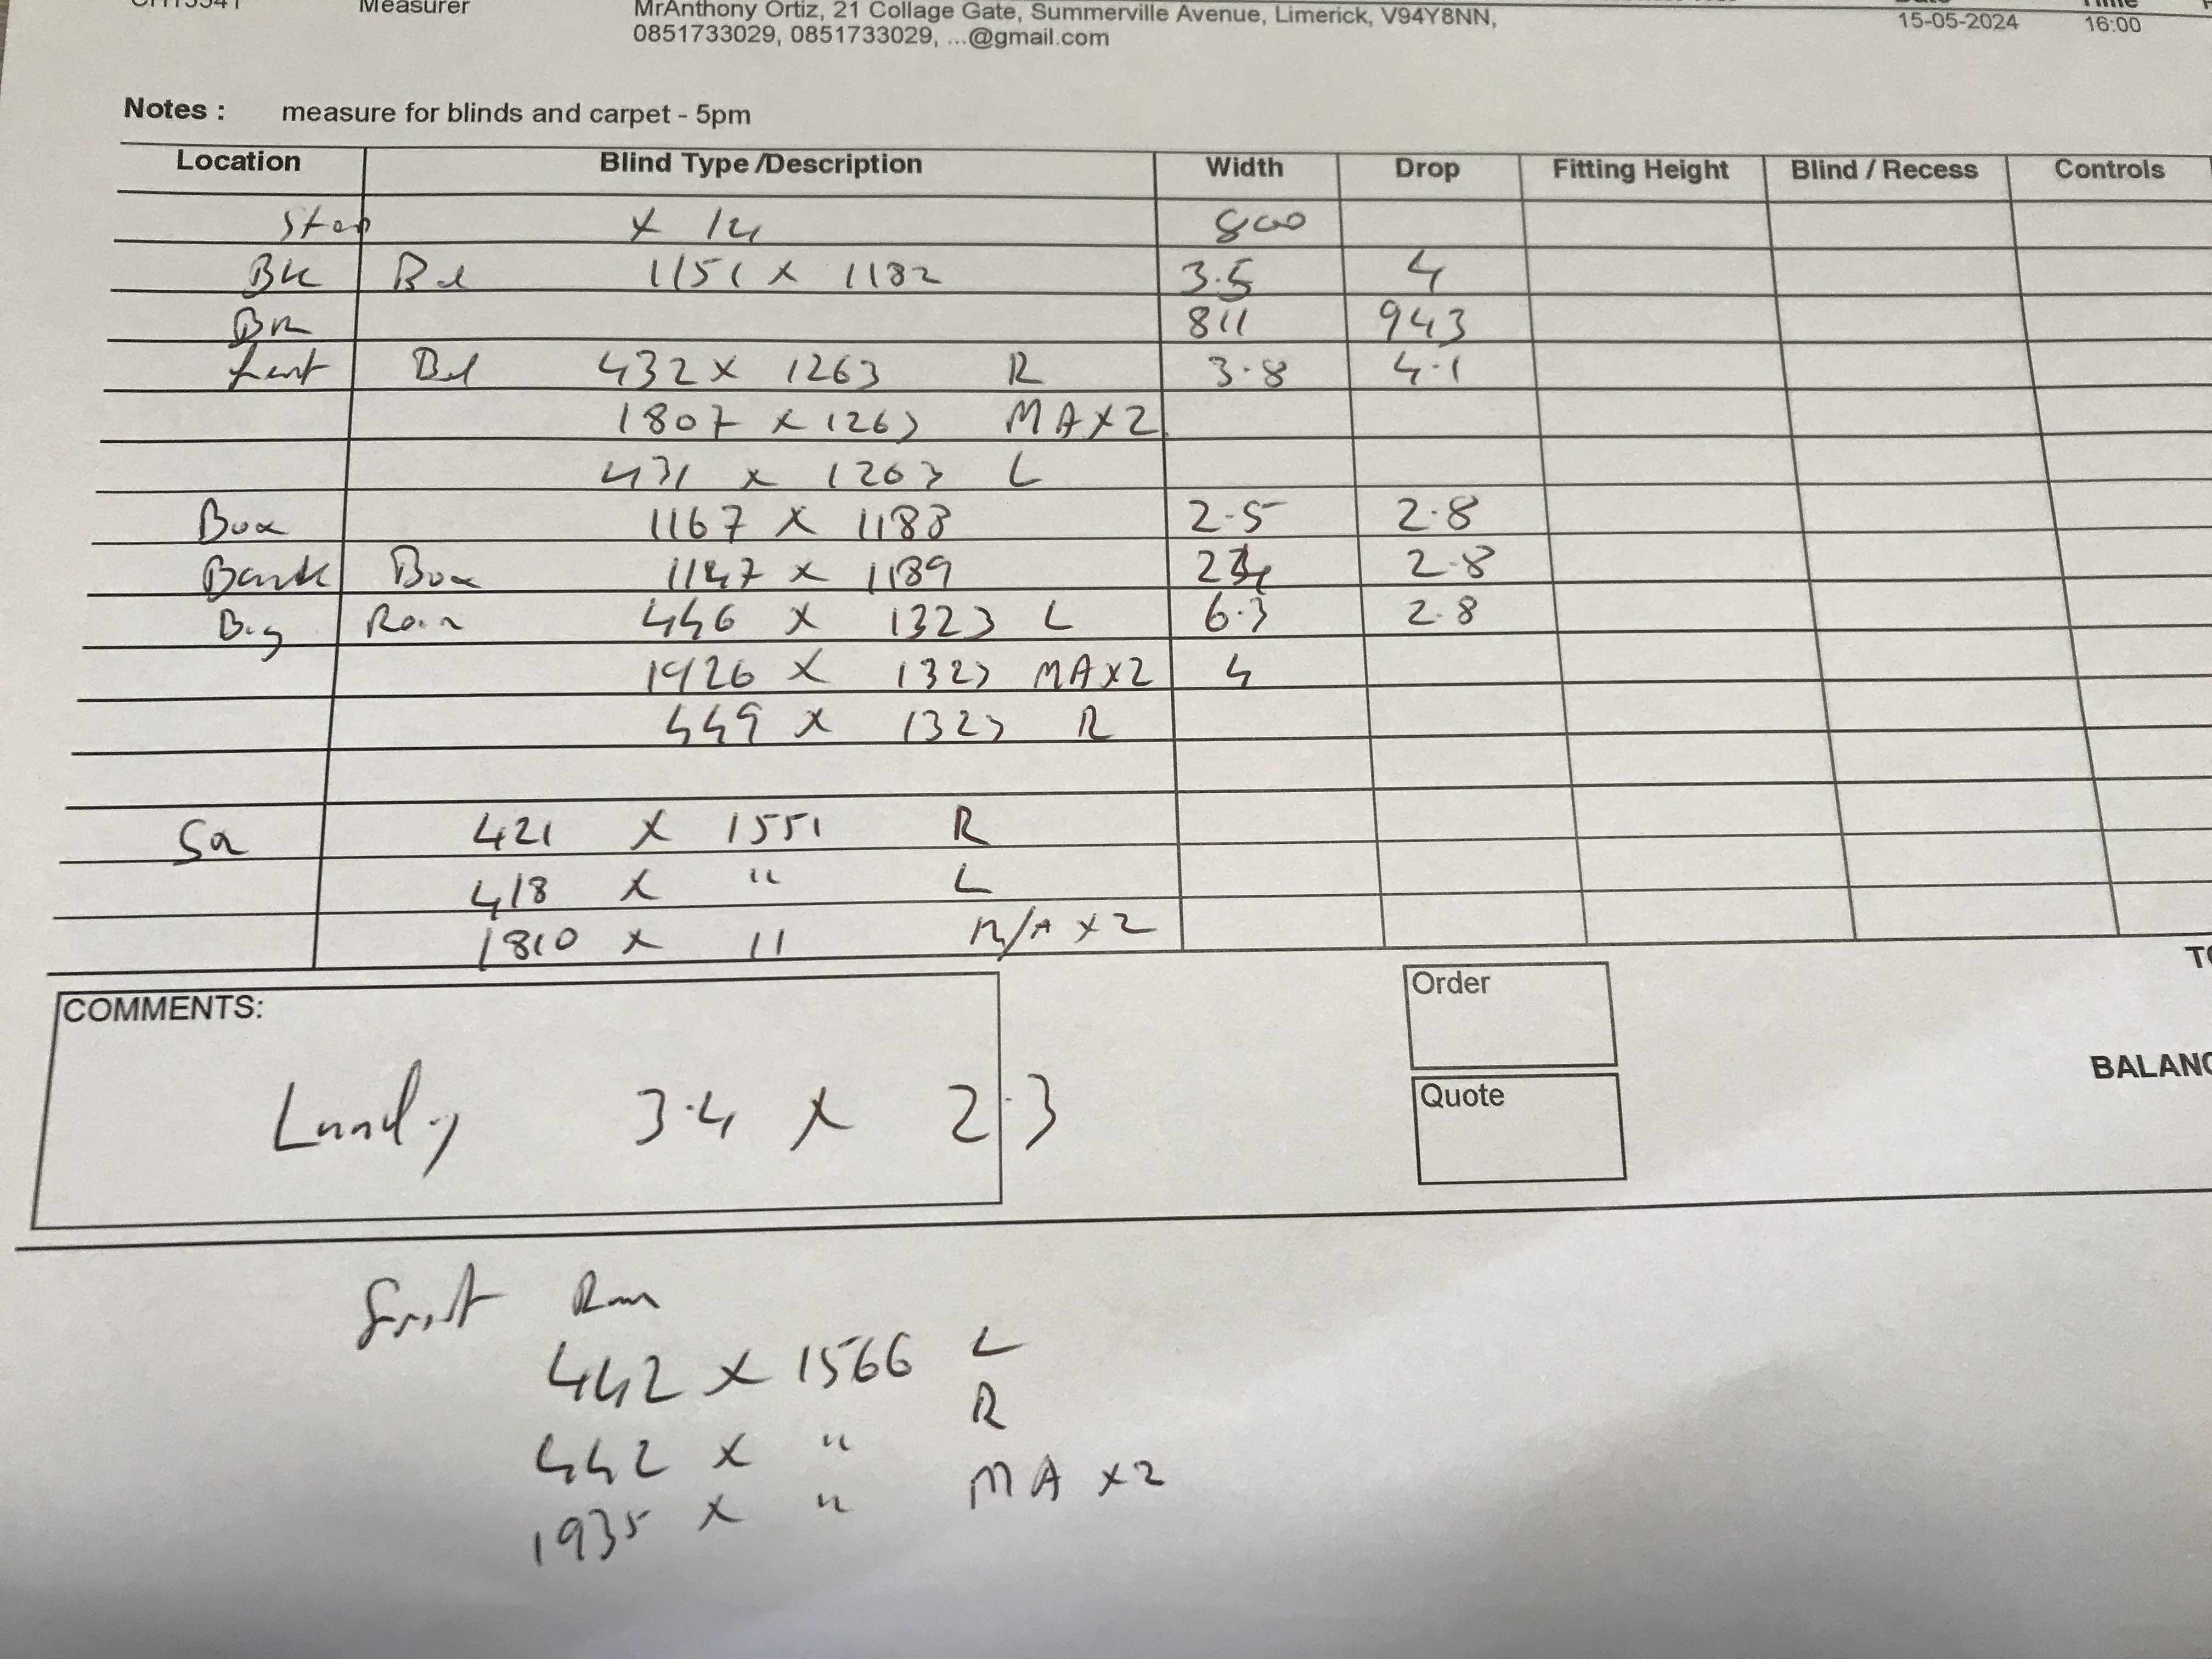 Measurer MrAnthony Ortiz, 21 Collage Gate, Summerville Avenue, Limerick, V94Y8NN, 15-05-2024 16:00
0851733029, 0851733029, ...@gmail.com
Notes : measure for blinds and carpet - 5pm
Location Blind Type /Description Width Drop Fitting Height Blind / Recess Controls
Step x 14 800
BK Bd 1151 x 1182 3.5 4
811 943
Bd 432 x 1263 R 3.8 4.1
1807 x 1263 MAX2
431 x 1263 L
Box 1167 x 1188 2.5 2.8
Box 1147 x 1189 2.8
Big Room 446 x 1323 L 6.3 2.8
1926 x 1323 MAX2 4
449 x 1323 R
421 x 1551 R
418 x " L
1810 x 11 M/A x 2
COMMENTS:
3.4 x 2.3
Order
Quote
Front Rm
442 x 1566 L
442 x " R
1935 x " MA x2